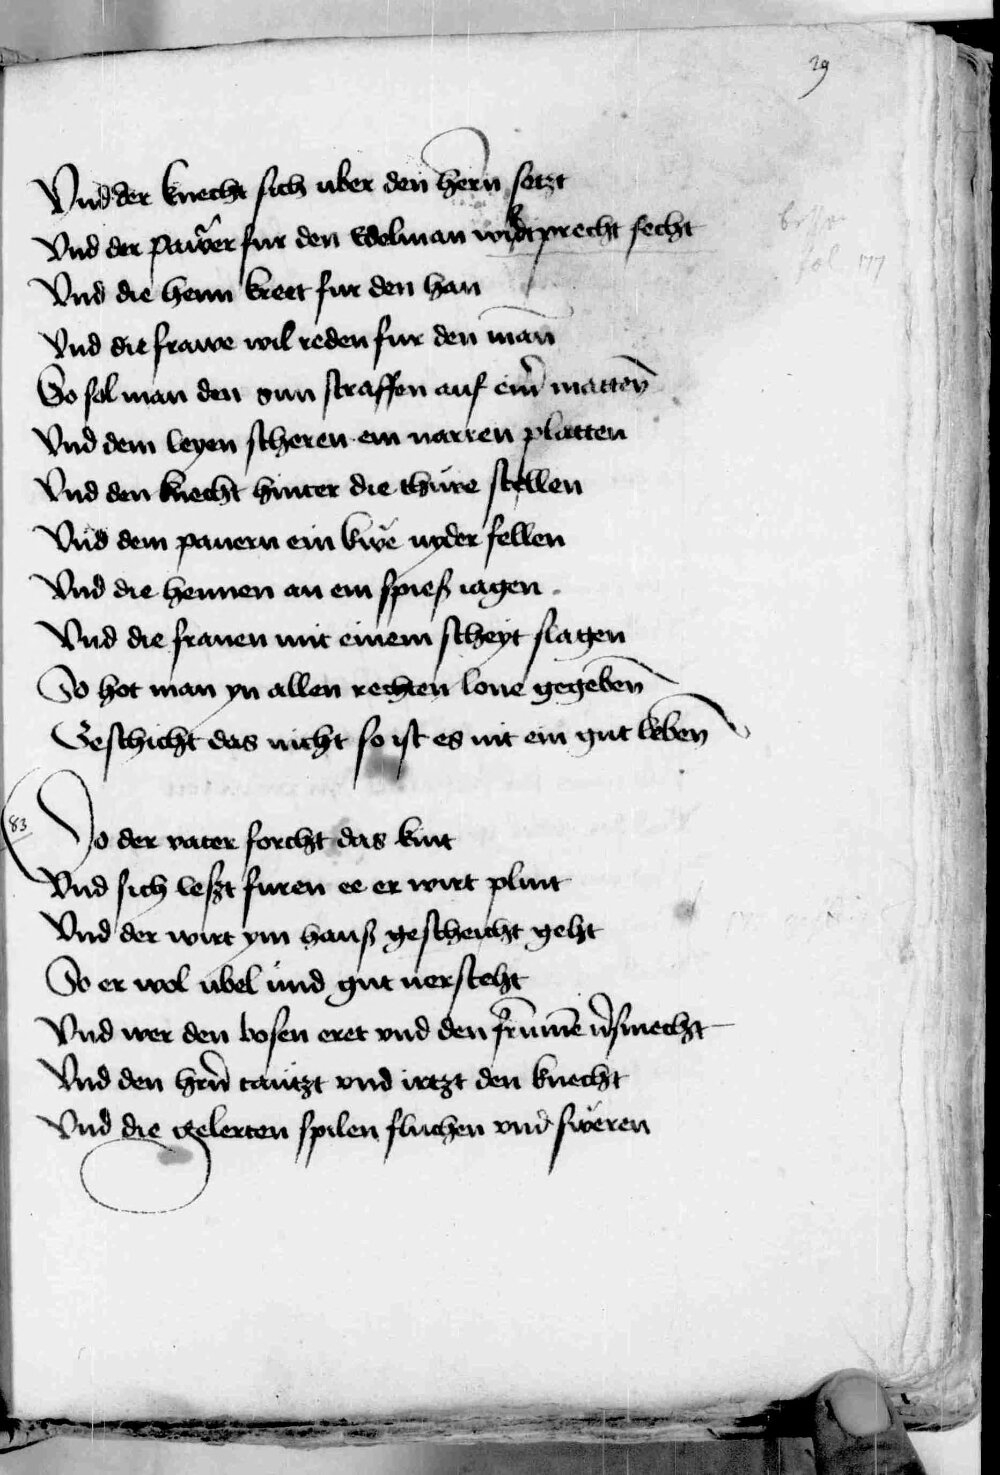 29
Vnd der knecht sich uber den hern setzt
Vnd der pawer fur den Edelman fecht
Vnd die henn kreet fur den han
Vnd die frawe wil reden fur den man̄
So sol man den sun straffen auf matten
Vnd dem leyen scheren ein narren platten
Vnd den knecht hinter die thure stellen
Vnd dem pauern ein kwe nyder fellen
Vnd die hennen an ein spieß iagen
Vnd die frauen mit einem scheyt slagen
So hot man yn allen rechten lone gegeben
Geschicht das nicht so ist es nit ein gut leben
83
So der vater forcht das kint
Vnd sich leszt furen ee er wirt plint
Vnd der wirt ym hauß gescheicht geht
So er wol ubel und gut uersteht
Vnd wer den bosen eret vnd den frūmē v̄smecht
Vnd den hrn̄ tautzt vnd irtzt den knecht
Vnd die gelerten spilen fluchen vnd sweren
fol 177